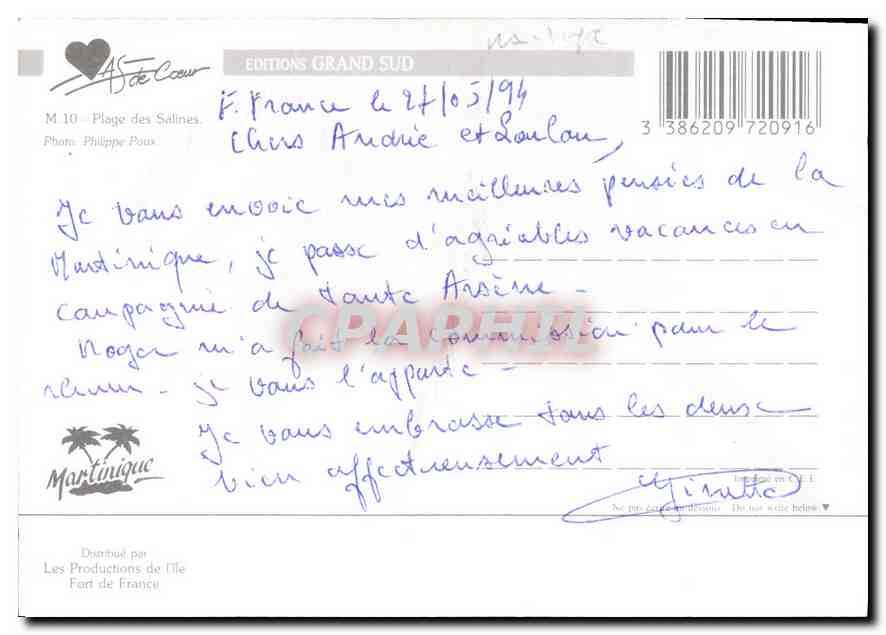 As de Cœur
EDITIONS GRAND SUD
M 10 - Plage des Salines.
Photo: Philippe Poux
3 386209 720916
F. France le 27/05/94
Chers Andrée et Loulou,
Je vous envoie mes meilleures pensées de la
Martinique, je passe d'agréables vacances en
compagnie de tante Arsène -
CPARHIL
Roger m'a fait la commission pour le
rhum - je vous l'apporte -
Je vous embrasse tous les deux
bien affectueusement
Martinique
Imprimé en C.E.E.
Ne pas écrire au dessous Do not write below ▼
Distribué par
Les Productions de l'Ile
Fort de France